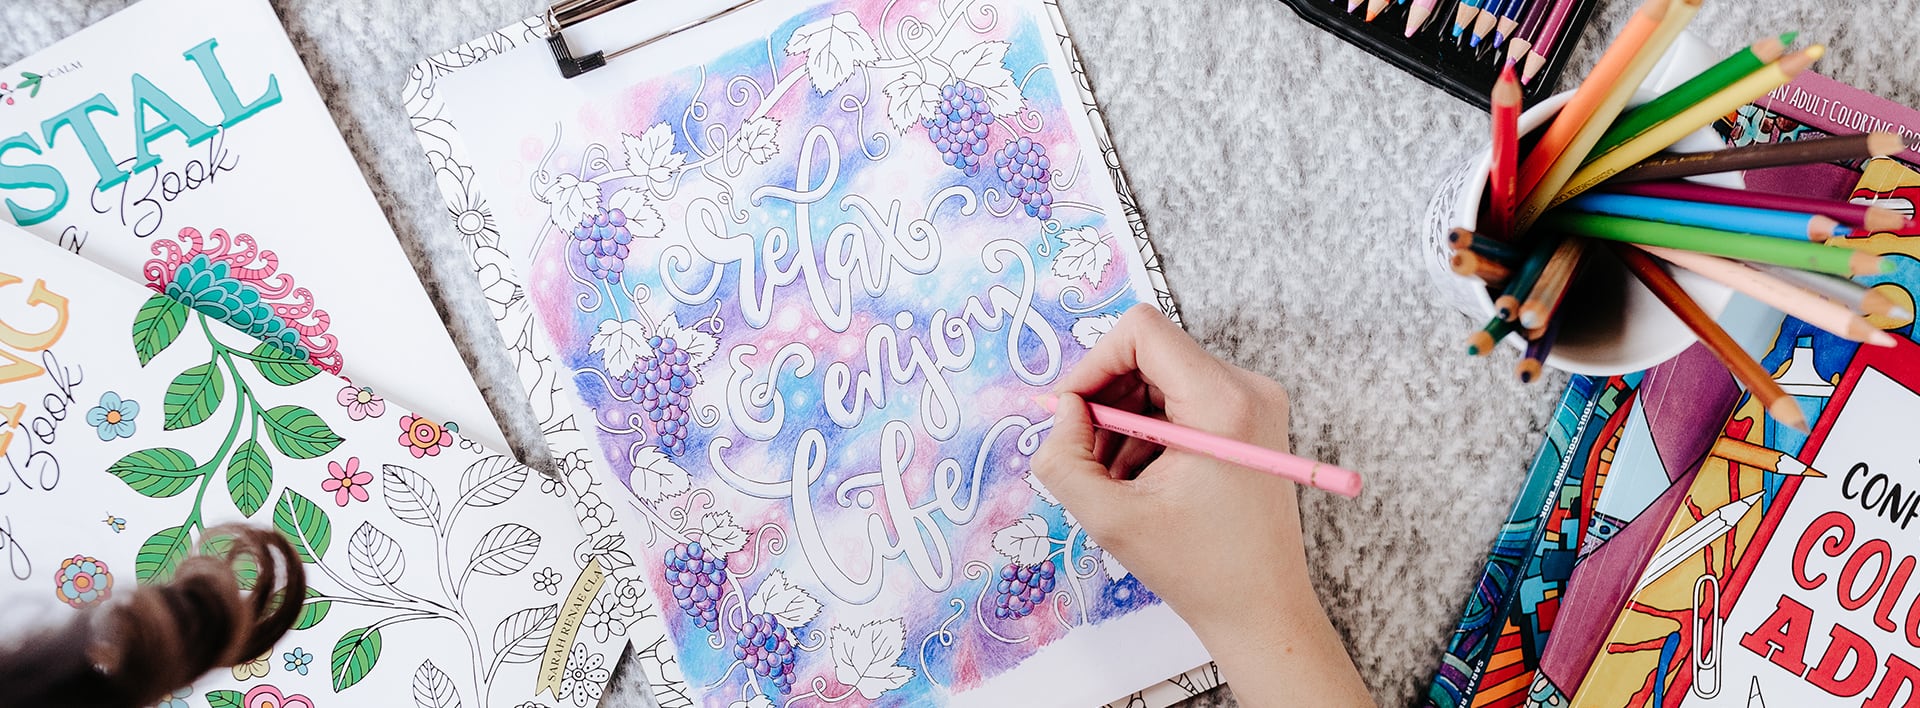 CALM
STAL
Book
Book
SARAH RENAE CLA
relax
& enjoy
life
AN ADULT COLORING BOO
ADULT COLORING BOOK
SARAH R
CONF
COLO
ADD